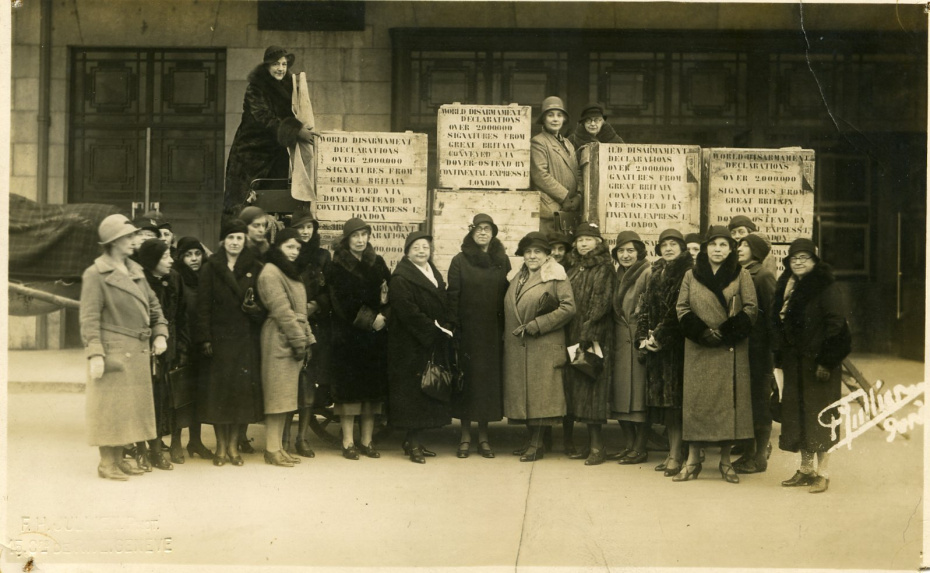 WORLD DISARMAMENT
DECLARATIONS
OVER 2,000,000
SIGNATURES FROM
GREAT BRITAIN
CONVEYED VIA
DOVER-OSTEND BY
CONTINENTAL EXPRESS Lᴰ
LONDON
WORLD DISARMAMENT
DECLARATIONS
OVER 2,000,000
SIGNATURES FROM
GREAT BRITAIN
CONVEYED VIA
DOVER-OSTEND BY
CONTINENTAL EXPRESS Lᴰ
LONDON
LD DISARMAMENT
DECLARATIONS
OVER 2,000,000
GNATURES FROM
GREAT BRITAIN
CONVEYED VIA
VER-OSTEND BY
TINENTAL EXPRESS L
LONDON
WORLD DISARMAMENT
DECLARATIONS
OVER 2,000,000
SIGNATURES FROM
GREAT BRITAIN
CONVEYED VIA
DOVER-OSTEND BY
CONTINENTAL EXPRESS Lᴰ
LONDON